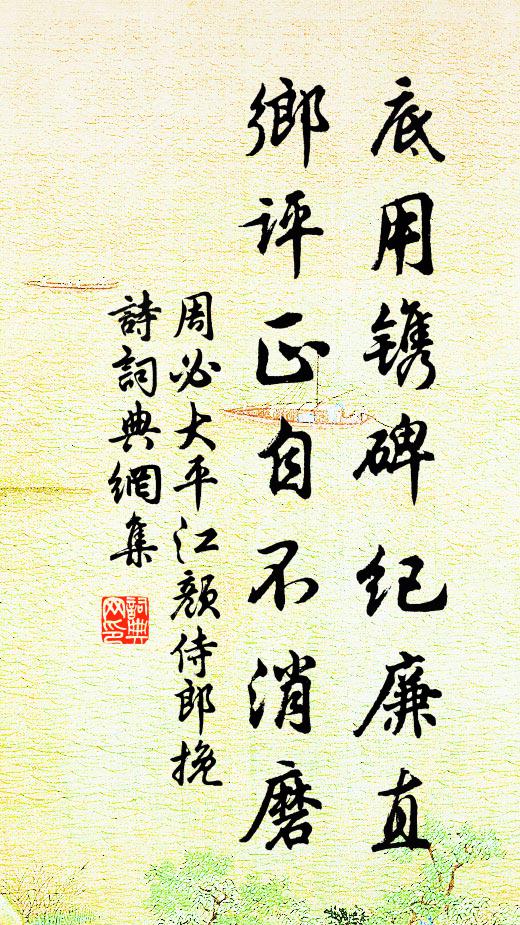 底用镌碑纪廉直
鄉评正自不消磨
周必大平江颜侍郎挽
詩詞典網集
詞典
网印